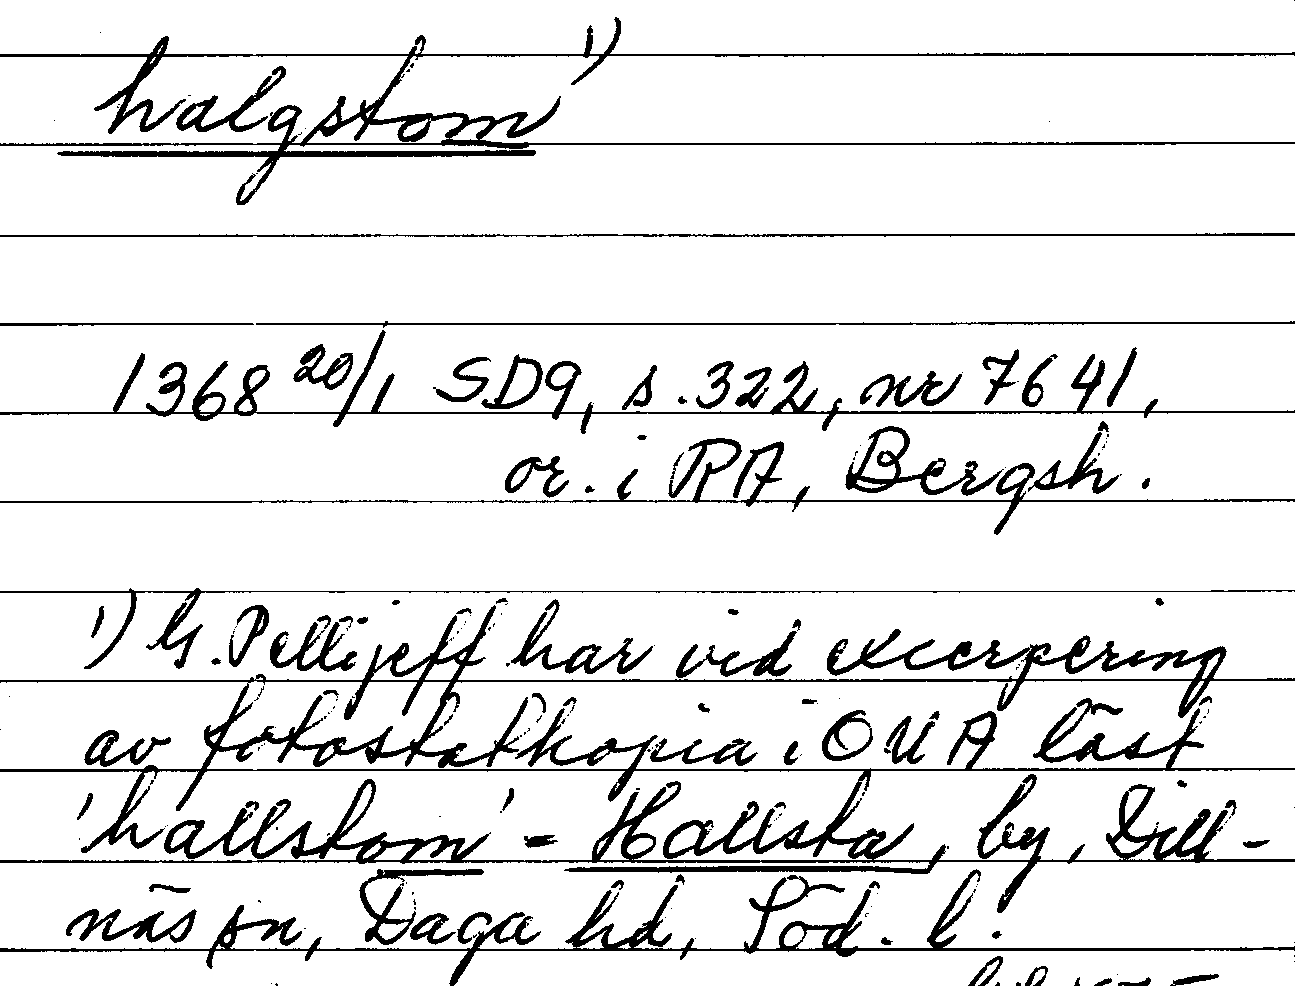 halgstom 1)
1368 20/1 SD9, s.322, nr 7641,
or. i RA, Bergsh.
1) G. Pellijeff har vid excerpering
av fotostatkopia i OUA läst
'hallstom' = Hallsta, by, Dill-
näs sn, Daga hd, Söd. l.